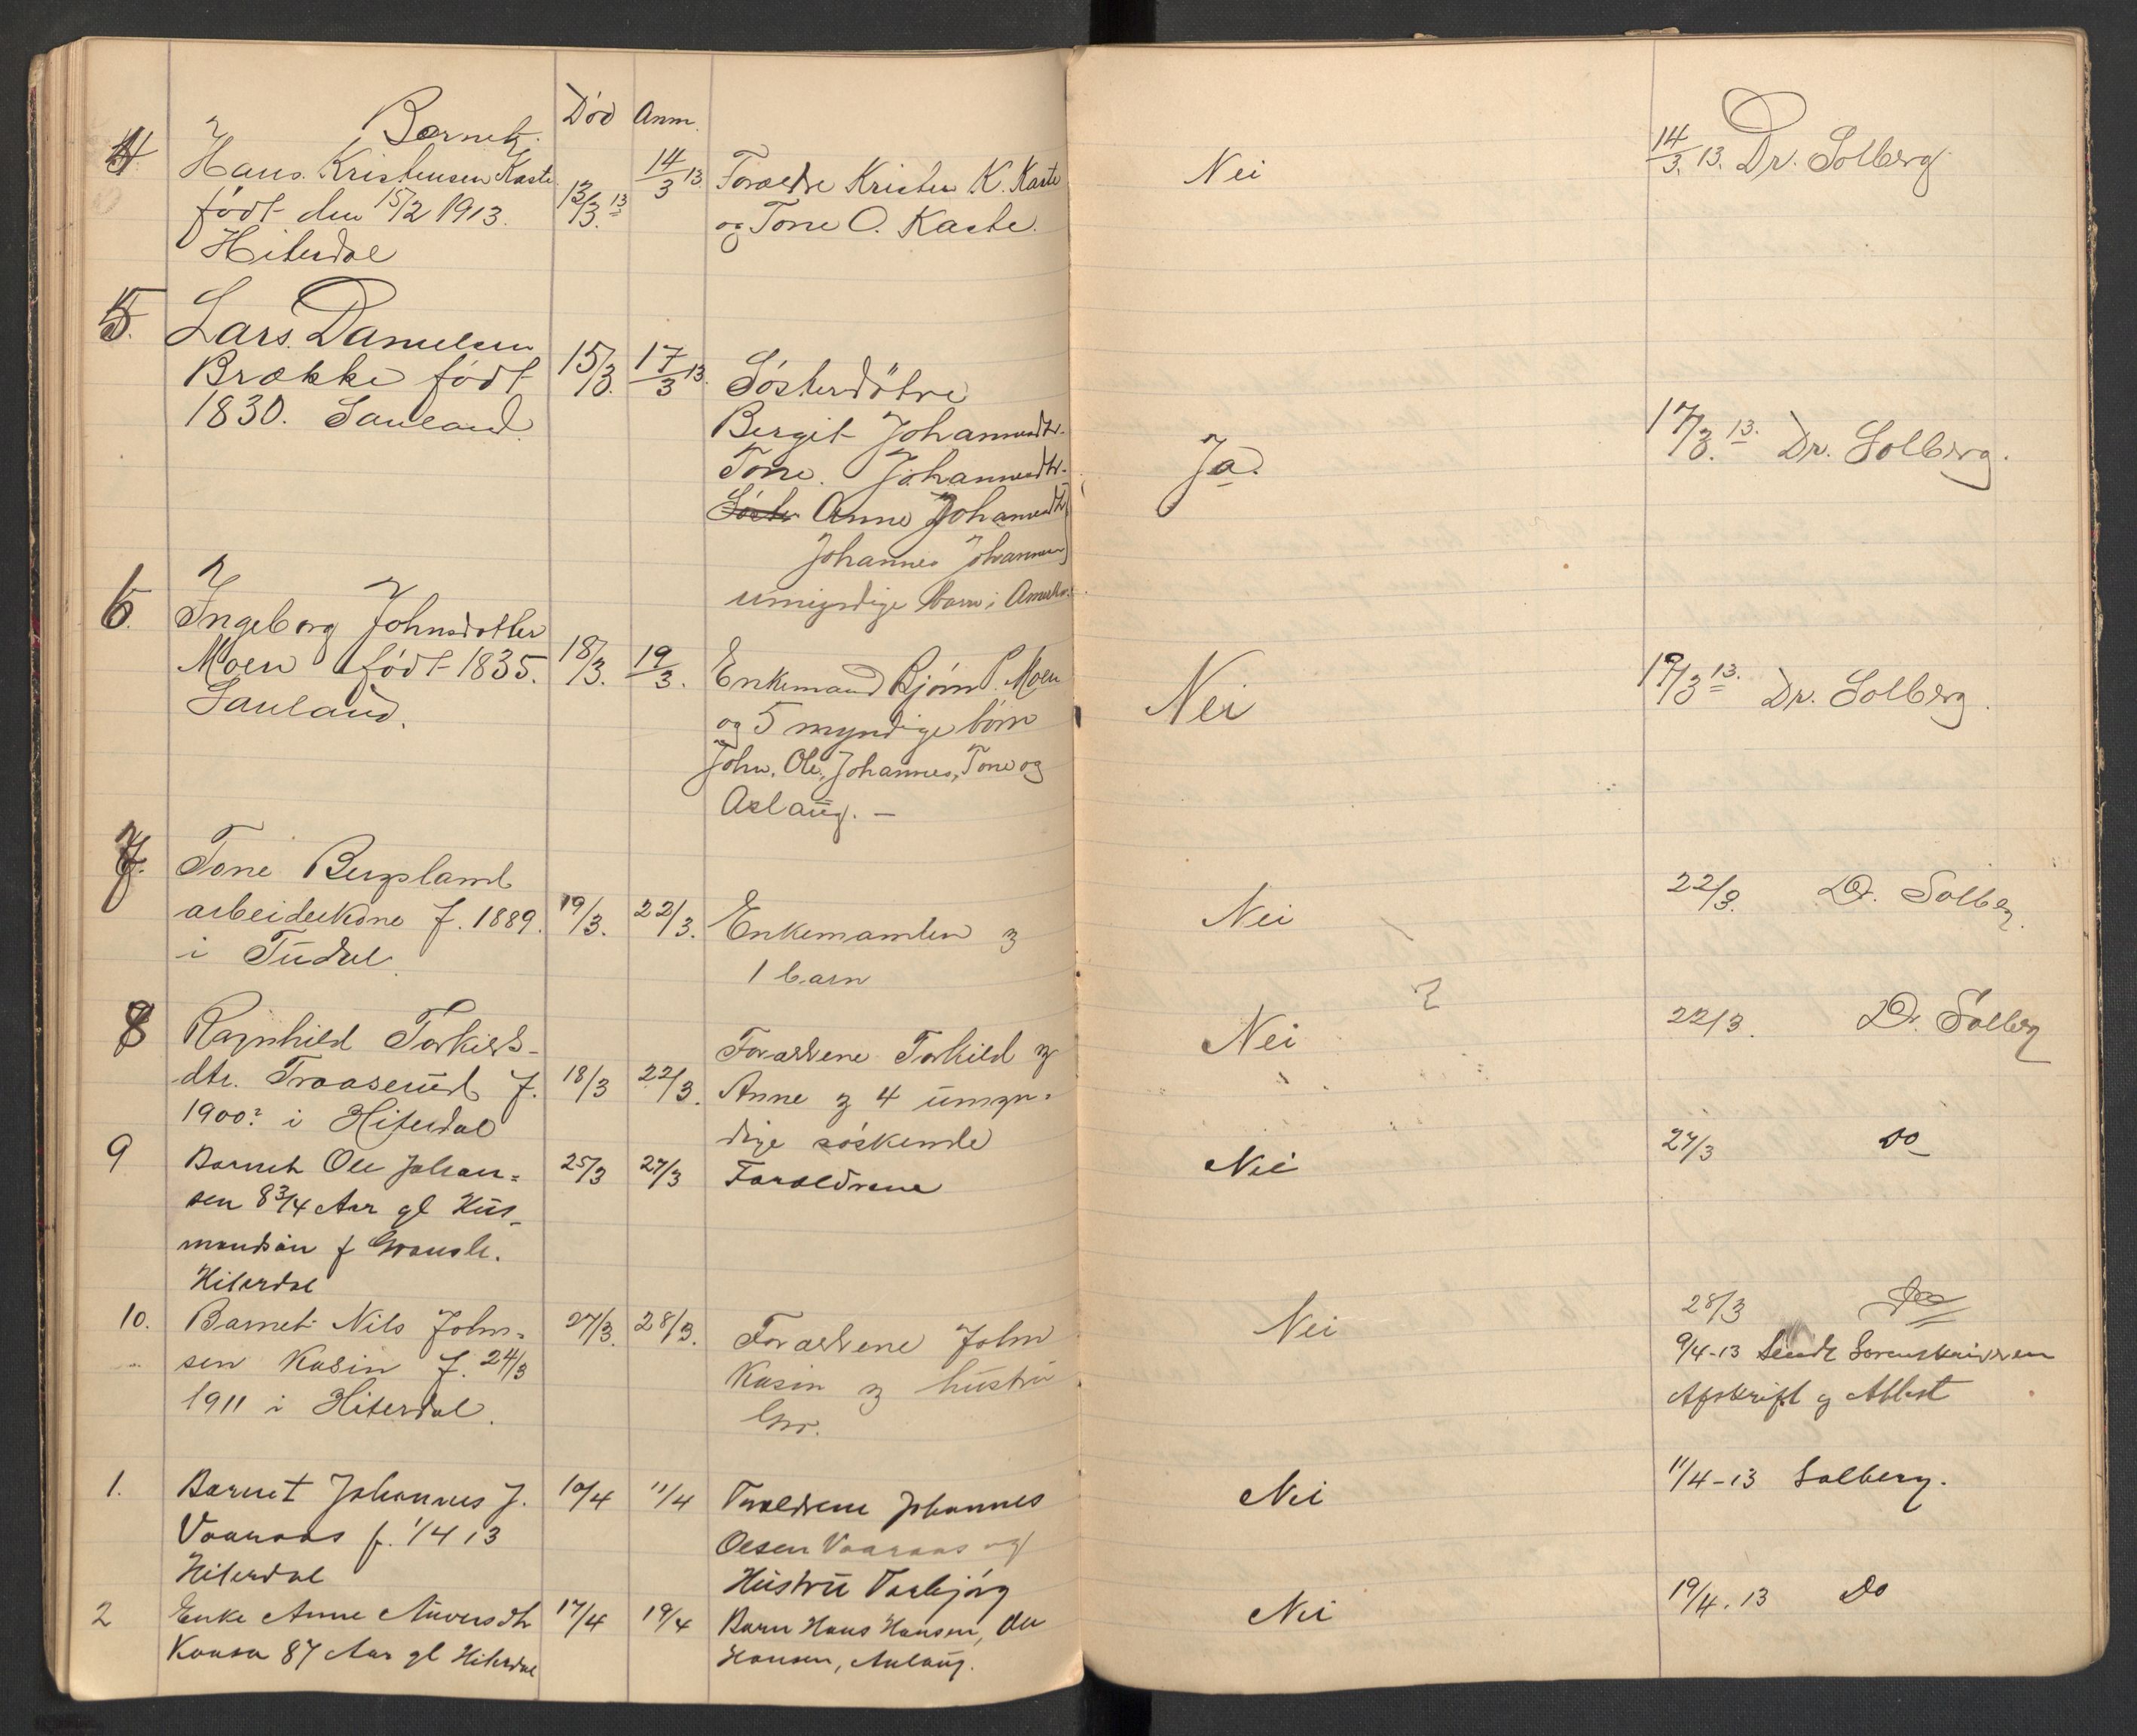 Død Anm.
4 Barnet
Hans Kristensen Kaste 13/3 13 14/3 13 Forældre Kristen K. Kaste Nei 14/3. 13. Dr. Solberg.
født den 15/2 1913. og Tone O. Kaste.
Hiterdal
5. Lars Danielsen
Brække født 15/3. 17/3 13. Søsterdøtre
1830. Sauland. Bergit Johannesdtr. Ja. 17/3. 13. Dr. Solberg.
Tone. Johannesdtr.
Søster Anne Johannesdtr
Johannes Johannesen
umyndige barn i Amerika.
6. Ingeborg Johnsdotter
Moen født 1835. 18/3. 19/3. Enkemand Bjørn P. Moen Nei 19/3 13. Dr. Solberg.
Sauland. og 5 myndige børn
John, Ole, Johannes, Tone og
Aslaug. —
7. Tone Bergsland
arbeiderkone f. 1889. 19/3. 22/3. Enkemanden og Nei 22/3. Dr. Solberg
i Tudal. 1 barn
8 Ragnhild Torkilds-
dtr. Traaserud f. 18/3 22/3. Forældrene Torkild og Nei 22/3. Dr. Solberg
1900? i Hiterdal Anne og 4 umyn-
dige søskende
9 Barnet Ole Johan- 25/3 27/3 Forældrene Nei 27/3 Do
sen 8 3/4 Aar gl Hus-
mandsøn f
Hiterdal
10. Barnet Nils John- 27/3. 28/3. Forældrene John Nei 28/3 Do
sen Kasin f. 24/3 Kasin og hustru 9/4-13 Sendt Sorenskriveren
1911 i Hiterdal. Gro. Afskrift og Attest
1. Barnet Johannes J. 10/4 11/4 Forældrene Johannes Nei 11/4-13 Solberg.
Vaaraas f. 1/4 13 Olsen Vaaraas og
Hiterdal Hustru Torbjørg
2 Enke Anne Auversdtr 17/4 19/4 Barn Hans Hansen, Ole Nei 19/4. 13 Do
Kaasa 87 Aar gl Hiterdal Hansen, Aslaug.